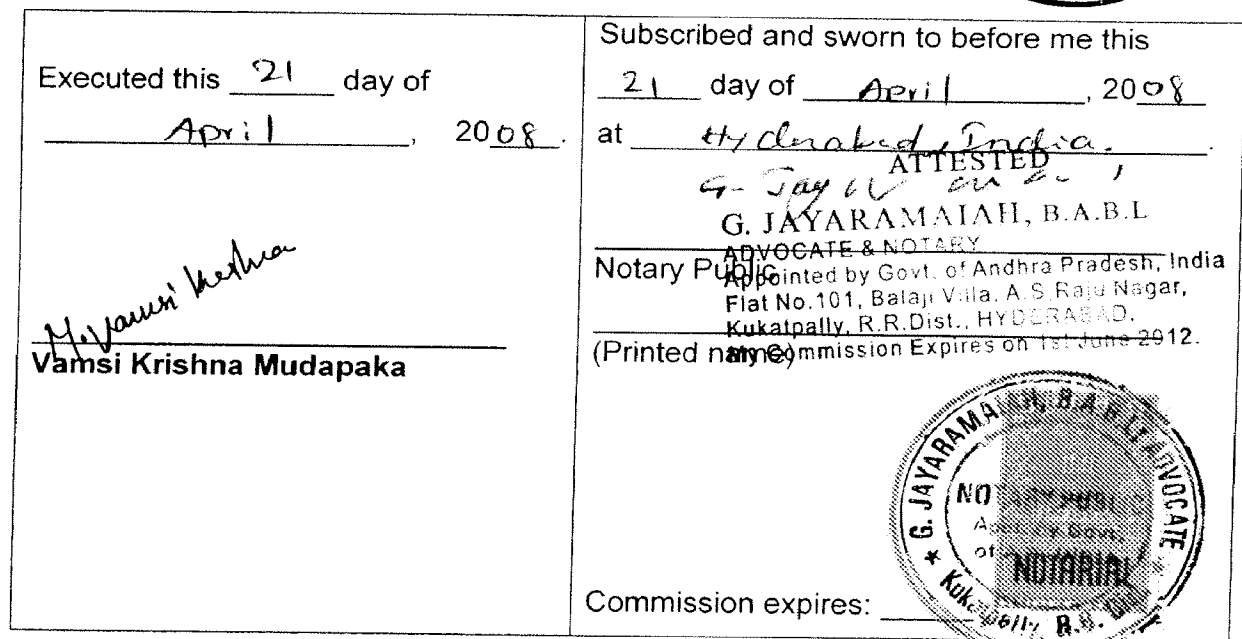 Executed this 21 day of
April, 2008.
M. Vamsi Krishna
Vamsi Krishna Mudapaka
Subscribed and sworn to before me this
21 day of April, 2008
at Hyderabad, India.
ATTESTED
G. JAYARAMAIAH, B.A.B.L
ADVOCATE & NOTARY
Notary Public
Appointed by Govt. of Andhra Pradesh, India
Flat No.101, Balaji Villa, A.S.Raju Nagar,
Kukatpally, R.R.Dist., HYDERABAD.
(Printed name)
My Commission Expires on 1st June 2012.
G. JAYARAMAIAH, B.A.B.L, ADVOCATE
NOTARY PUBLIC
Govt.
of
NOTARIAL
Commission expires: